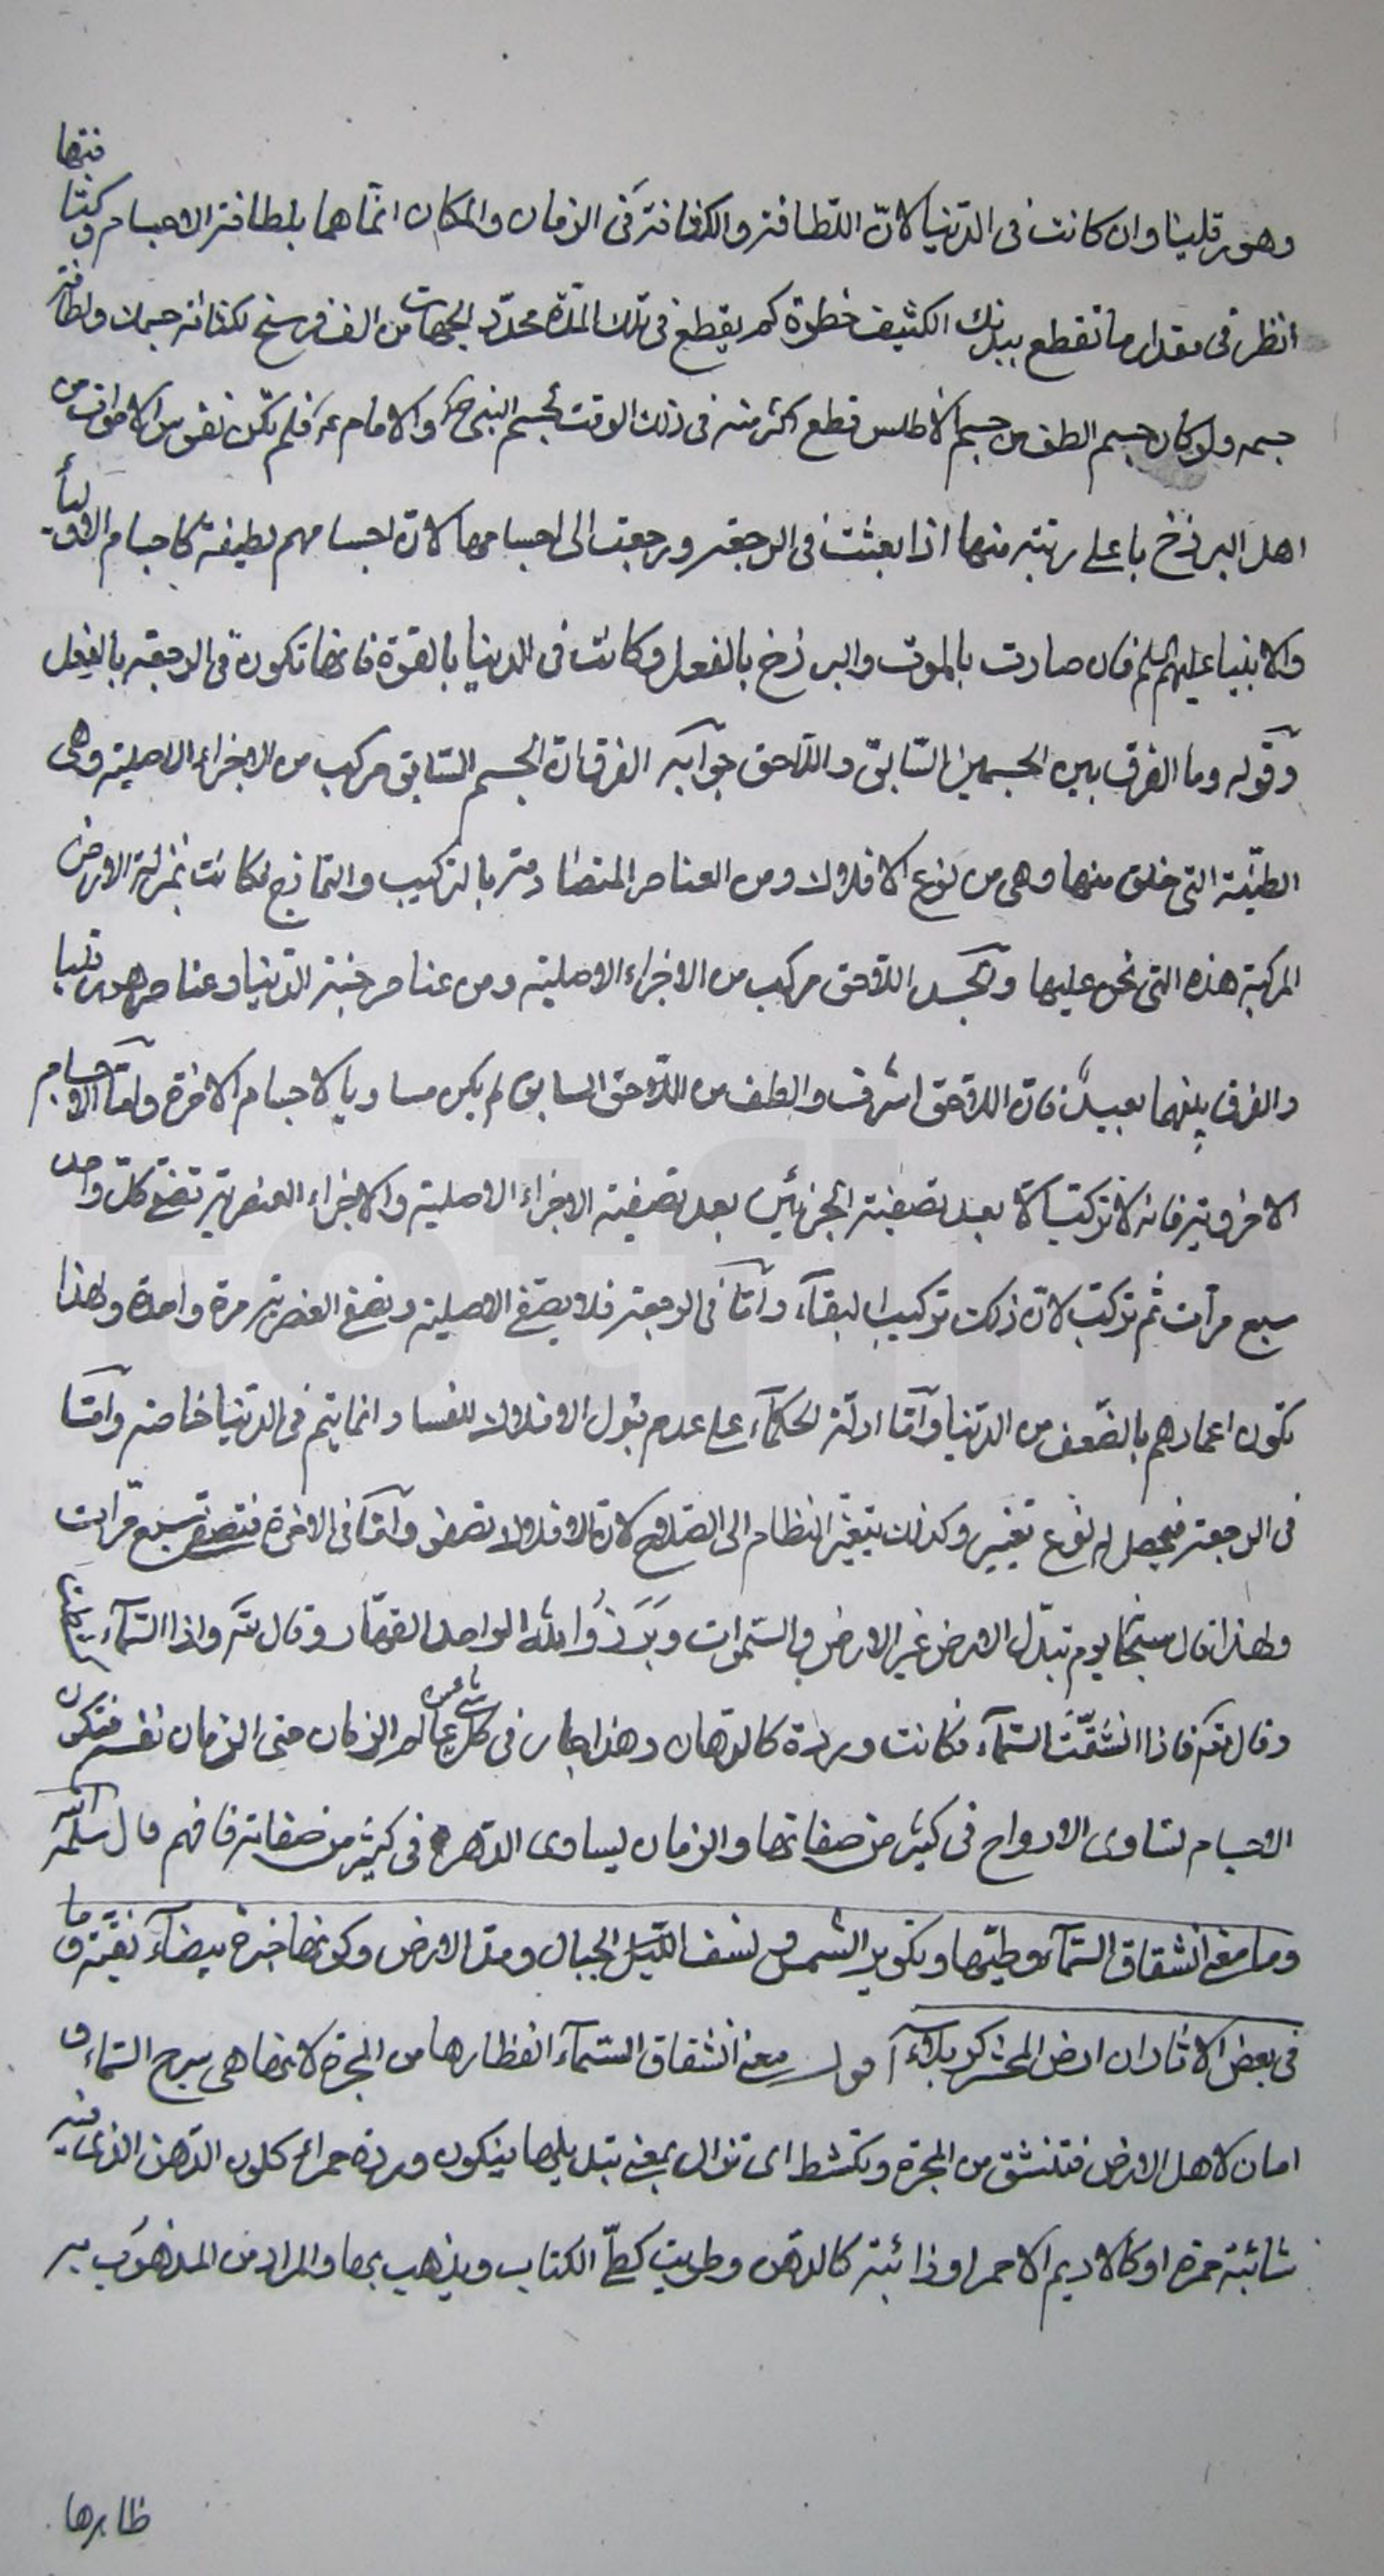 وهورقليا وان كانت فى الدّنيا لانّ اللّطافة والكثافة فى الزمان والمكان انّما هما بلطافة الاجسام وكثافتها
انظر فى مقدار ما تقطع ببدنك الكثيف خطوة كم يقطع فى تلك المدّة محدّد الجهات من الف فرسخ لكثافة جسمك ولطافة
جسمه ولو كان جسم الطف من جسم الاطلس قطع اكثر منه فى ذلك الوقت كجسم النبى ص والامام ع فلم تكن نفوس الاموات من
اهل البرزخ باعلى رتبة منها اذا بعثت فى الرجعة ورجعت الى اجسامها لانّ اجسامهم لطيفة كاجسام الاوليآء
والانبيا عليهم السلم فان صارت بالموت والبرزخ بالفعل وكانت فى الدنيا بالقوة فانها تكون فى الرجعة بالفعل
وقوله وما الفرق بين الجسمين السّابق واللّاحق جوابه الفرق انّ الجسم السّابق مركب من الاجزاء الاصلية وهى
الطيّنة التى خلق منها وهى من نوع الافلاك ومن العناصر المتضادمة بالتركيب والتمازج فكانت بمنزلة الارض
المركبة هذه التى نحن عليها والجسد اللاحق مركب من الاجزاء الاصلية ومن عناصر جنة الدّنيا وعناصر هورقليا
والفرق بينهما بعيد فانّ اللاحق اشرف والطف من اللّاحق السابق لم يكن مساويا لاجسام الاخرة وامّا الاجسام
الاخروية فانه لا تركب الا بعد تصفية الجزئين بعد تصفية الاجزاء الاصلية والاجزاء العنصرية تصفى كلّ واحد
سبع مرّات ثم تركب لانّ ذلك تركيب البقآء وامّا فى الرجعة فلا يصفى الاصلية وتصفى العنصرية مرة واحدة ولهذا
تكون اعمارهم بالضّعف من الدّنيا وامّا ادلّة الحكمآء على عدم قبول الافلاك للفساد انما يتم فى الدّنيا خاصة وامّا
فى الرجعة فيحصل له نوع تغيير وكذلك يتغيّر النظام الى الصّلاح لانّ الافلاك تصفو وامّا فى الاخرة فتصفى سبع مرّات
ولهذا قال سبحانه يوم تبدّل الارض غير الارض والسّموات وبَرَزُوا لله الواحد القهّار وقال تعالى واذا السّمآء كشطت
وقال تعالى فاذا انشَقّتَ السّمآء فكانت وردة كالدّهان وهذا جار فى كلّ شئ من عالم الزمان حتى الزمان نفسه فتكون
الاجسام تساوى الارواح فى كثير من صفاتها والزمان يساوى الدّهر فى كثير من صفاته فافهم قال سلّمه الله
وما معنى انشقاق السّمآء وطيّها وتكوير الشمس ونسف الجبال ومدّ الارض وكونها خبزة بيضآء نقيّة وما
فى بعض الاثار ان ارض المحشر كربلاء اقول معنى انشقاق السّمآء انفطارها من المجرّة لانها هى شرج السّماء و
امان لاهل الارض فتنشق من المجرّة وتكشط اى تزال بمعنى تبديلها فيكون وردة حمراء كلون الدّهن الذى فيه
شائبة حمرة او كالاديم الاحمر او ذائبة كالدّهن وطويت كطىّ الكتاب ويذهب بها والمراد من المذهوب به
ظاهرها